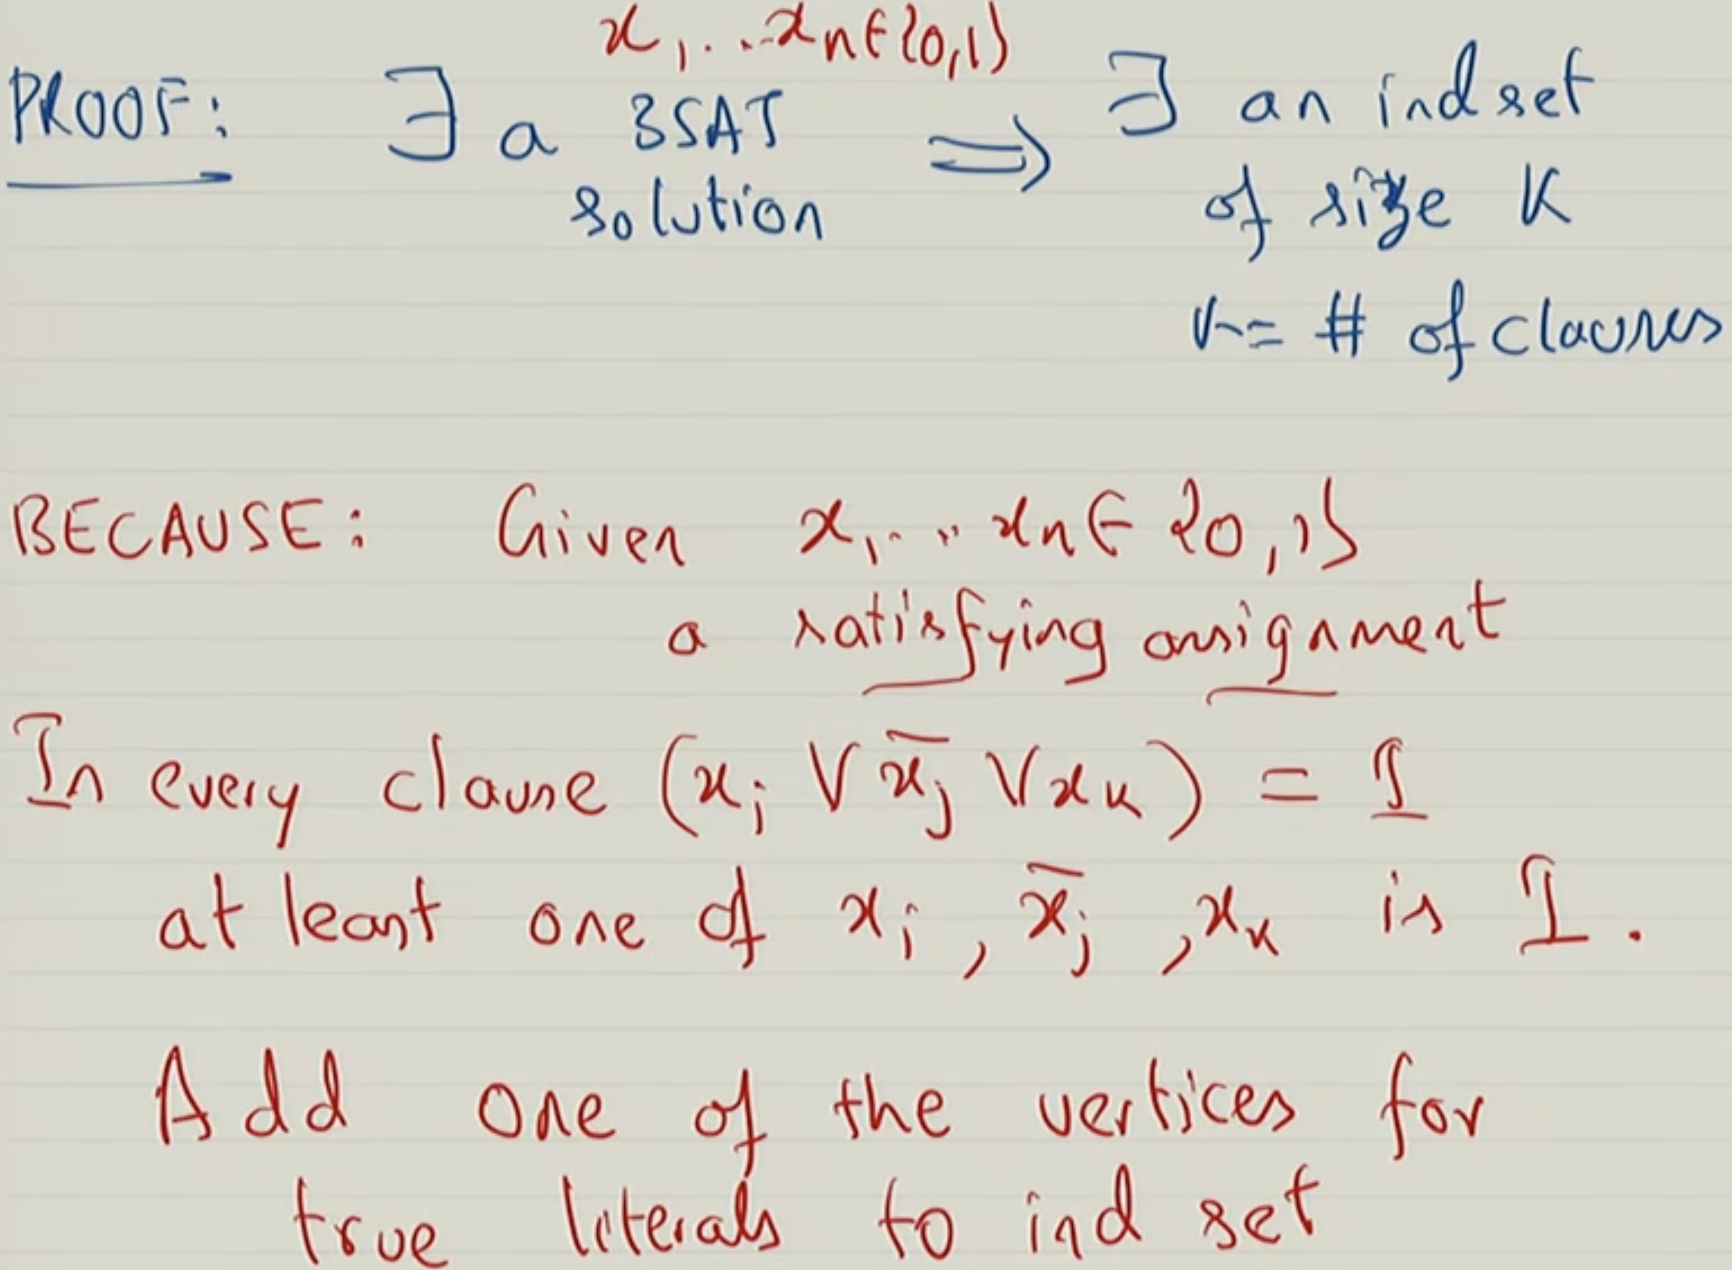 x₁...xₙ∈{0,1}
PROOF: ∃ a 3SAT ⟹ ∃ an ind set
solution of size K
k = # of clauses
BECAUSE: Given x₁...xₙ∈{0,1}
a satisfying assignment
In every clause (xᵢ ∨ x̄ⱼ ∨ xₖ) = 1
at least one of xᵢ, x̄ⱼ, xₖ is 1.
Add one of the vertices for
true literals to ind set